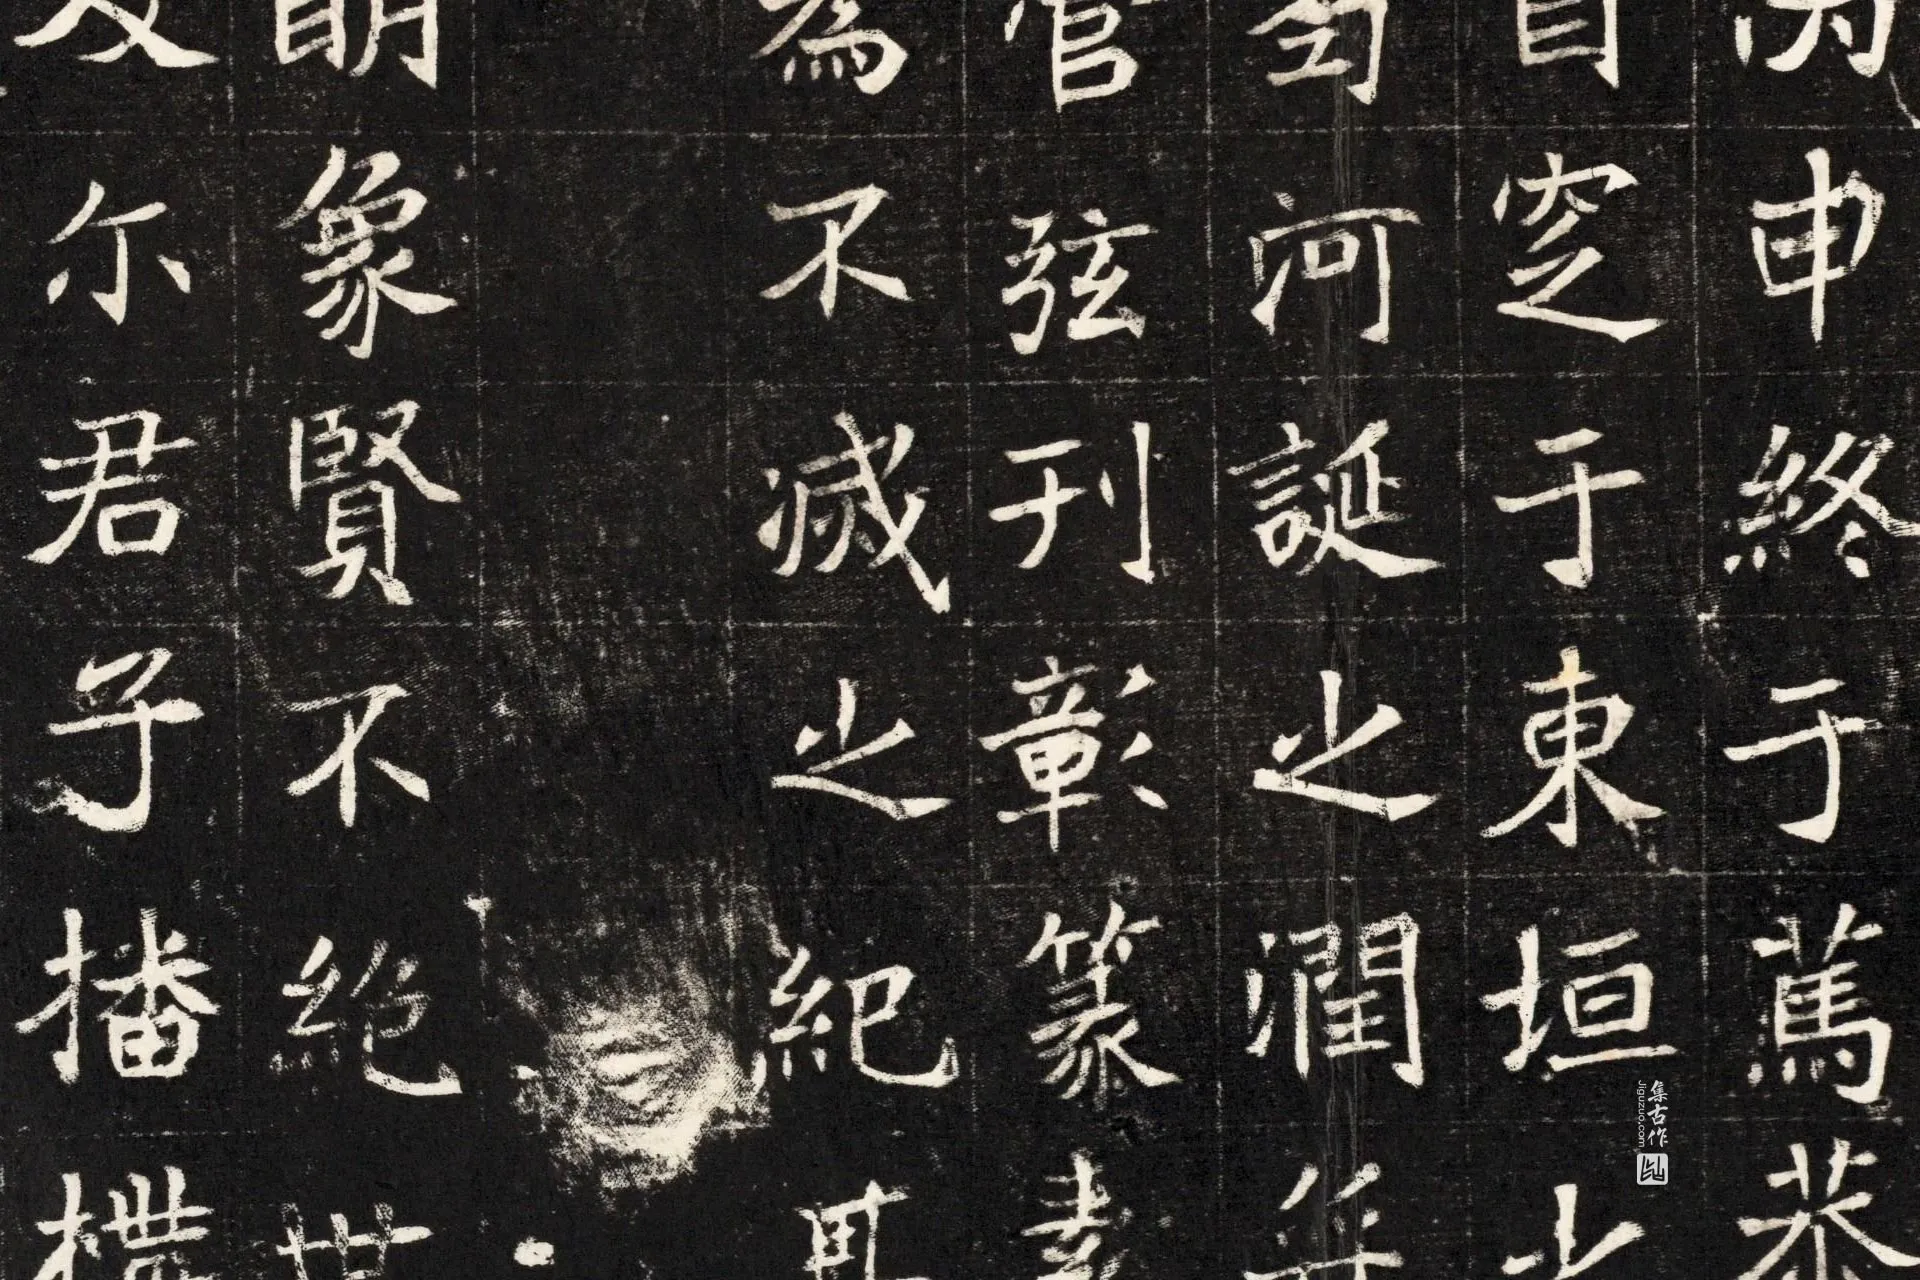 申終于蔦
目窆于東垣
河誕之潤
管弦刊彰篆素
為不滅之紀
明象賢不絕世
尔君子播
集古作
Jiguzuo.com